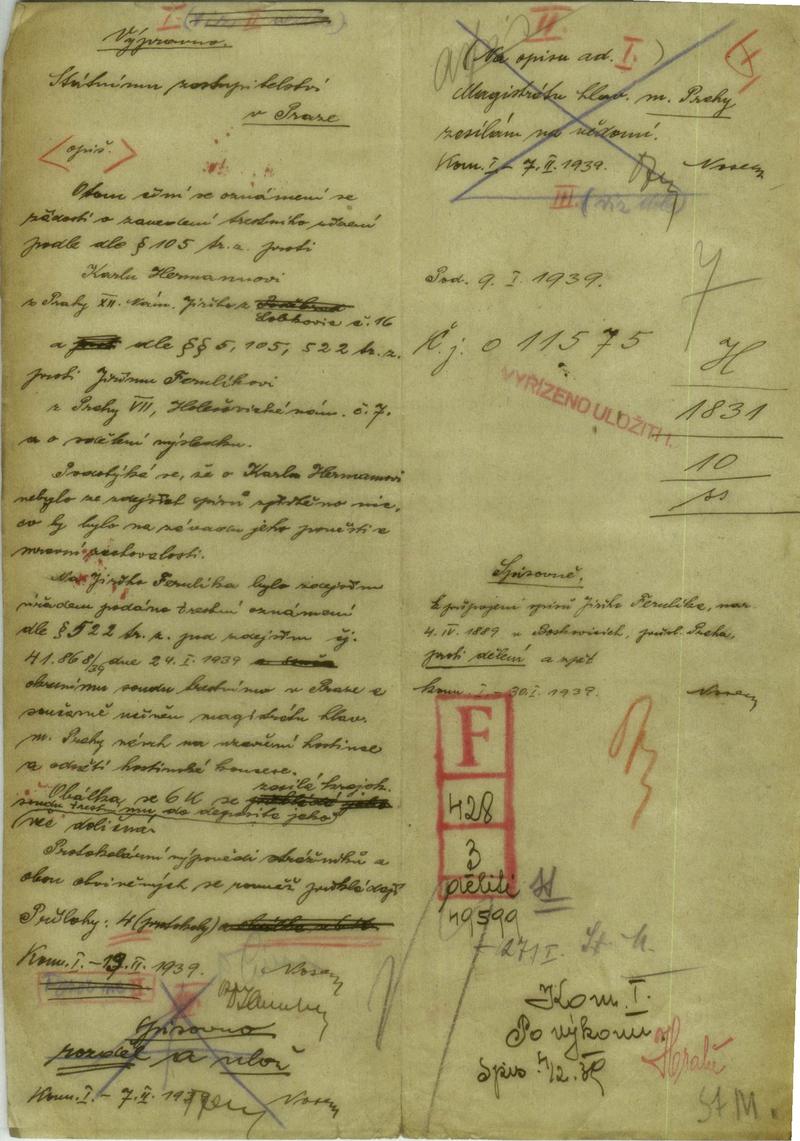 I. (viz II
Výpravna.
Státnímu zastupitelství
v Praze
opis.
O tom činí se oznámení se
žádostí o zavedení trestního řízení
podle dle § 105 tr. z. proti
Karlu Hermannovi
z Prahy XII. Nám. Jiřího z
Lobkovic č. 16
a dle §§ 5, 105, 522 tr. z.
proti Jiřímu Ferulíkovi
z Prahy VII, Holešovické nám. č. 7.
a o sdělení výsledku.
Podotýká se, že o Karlu Hermannovi
nebylo ze zdejších spisů zjištěno nic,
co by bylo na závadu jeho pověsti a
mravní zachovalosti.
Na Jiřího Ferulíka bylo zdejším
úřadem podáno trestní oznámení
dle § 522 tr. z. pod zdejším čj.
41.868/39 dne 24. I. 1939
okresnímu soudu trestnímu v Praze a
současně učiněn magistrátu hlav.
m. Prahy návrh na uzavření hostince
a odnětí hostinské koncese.
Obálka se 6 K se zasílá krajsk.
soudu trestnímu do deposita jako
věc doličná.
Protokolární výpovědi strážníků a
obou obviněných se rovněž přikládají
Přílohy: 4 (protokoly) a obálka se 6 K
Kom. I. – 13. II. 1939.
Nosek
Spisovno
rozděl a ulož
Kom. I. – 7. II. 1939
Nosek
II.
(Na opisu ad. I.)
Magistrátu hlav. m. Prahy
zasílám na vědomí.
Kom. I – 7. II. 1939.
Nosek
III. (viz
Pod. 9. I. 1939.
Č. j. 011575
H
1831
10
ss
VYŘÍZENO ULOŽITI.
Spisovně,
k připojení spisů Jiřího Ferulíka, nar.
4. IV. 1889 v Boskovicích, přísl. Praha,
proti dělení a zpět
kom. I – 30. I. 1939.
Nosek
F
428
3
děliti
49599
27 I. St. M.
Kom. I.
Po výkonu
Spis. 4/2. 39
Hrabě
St M.